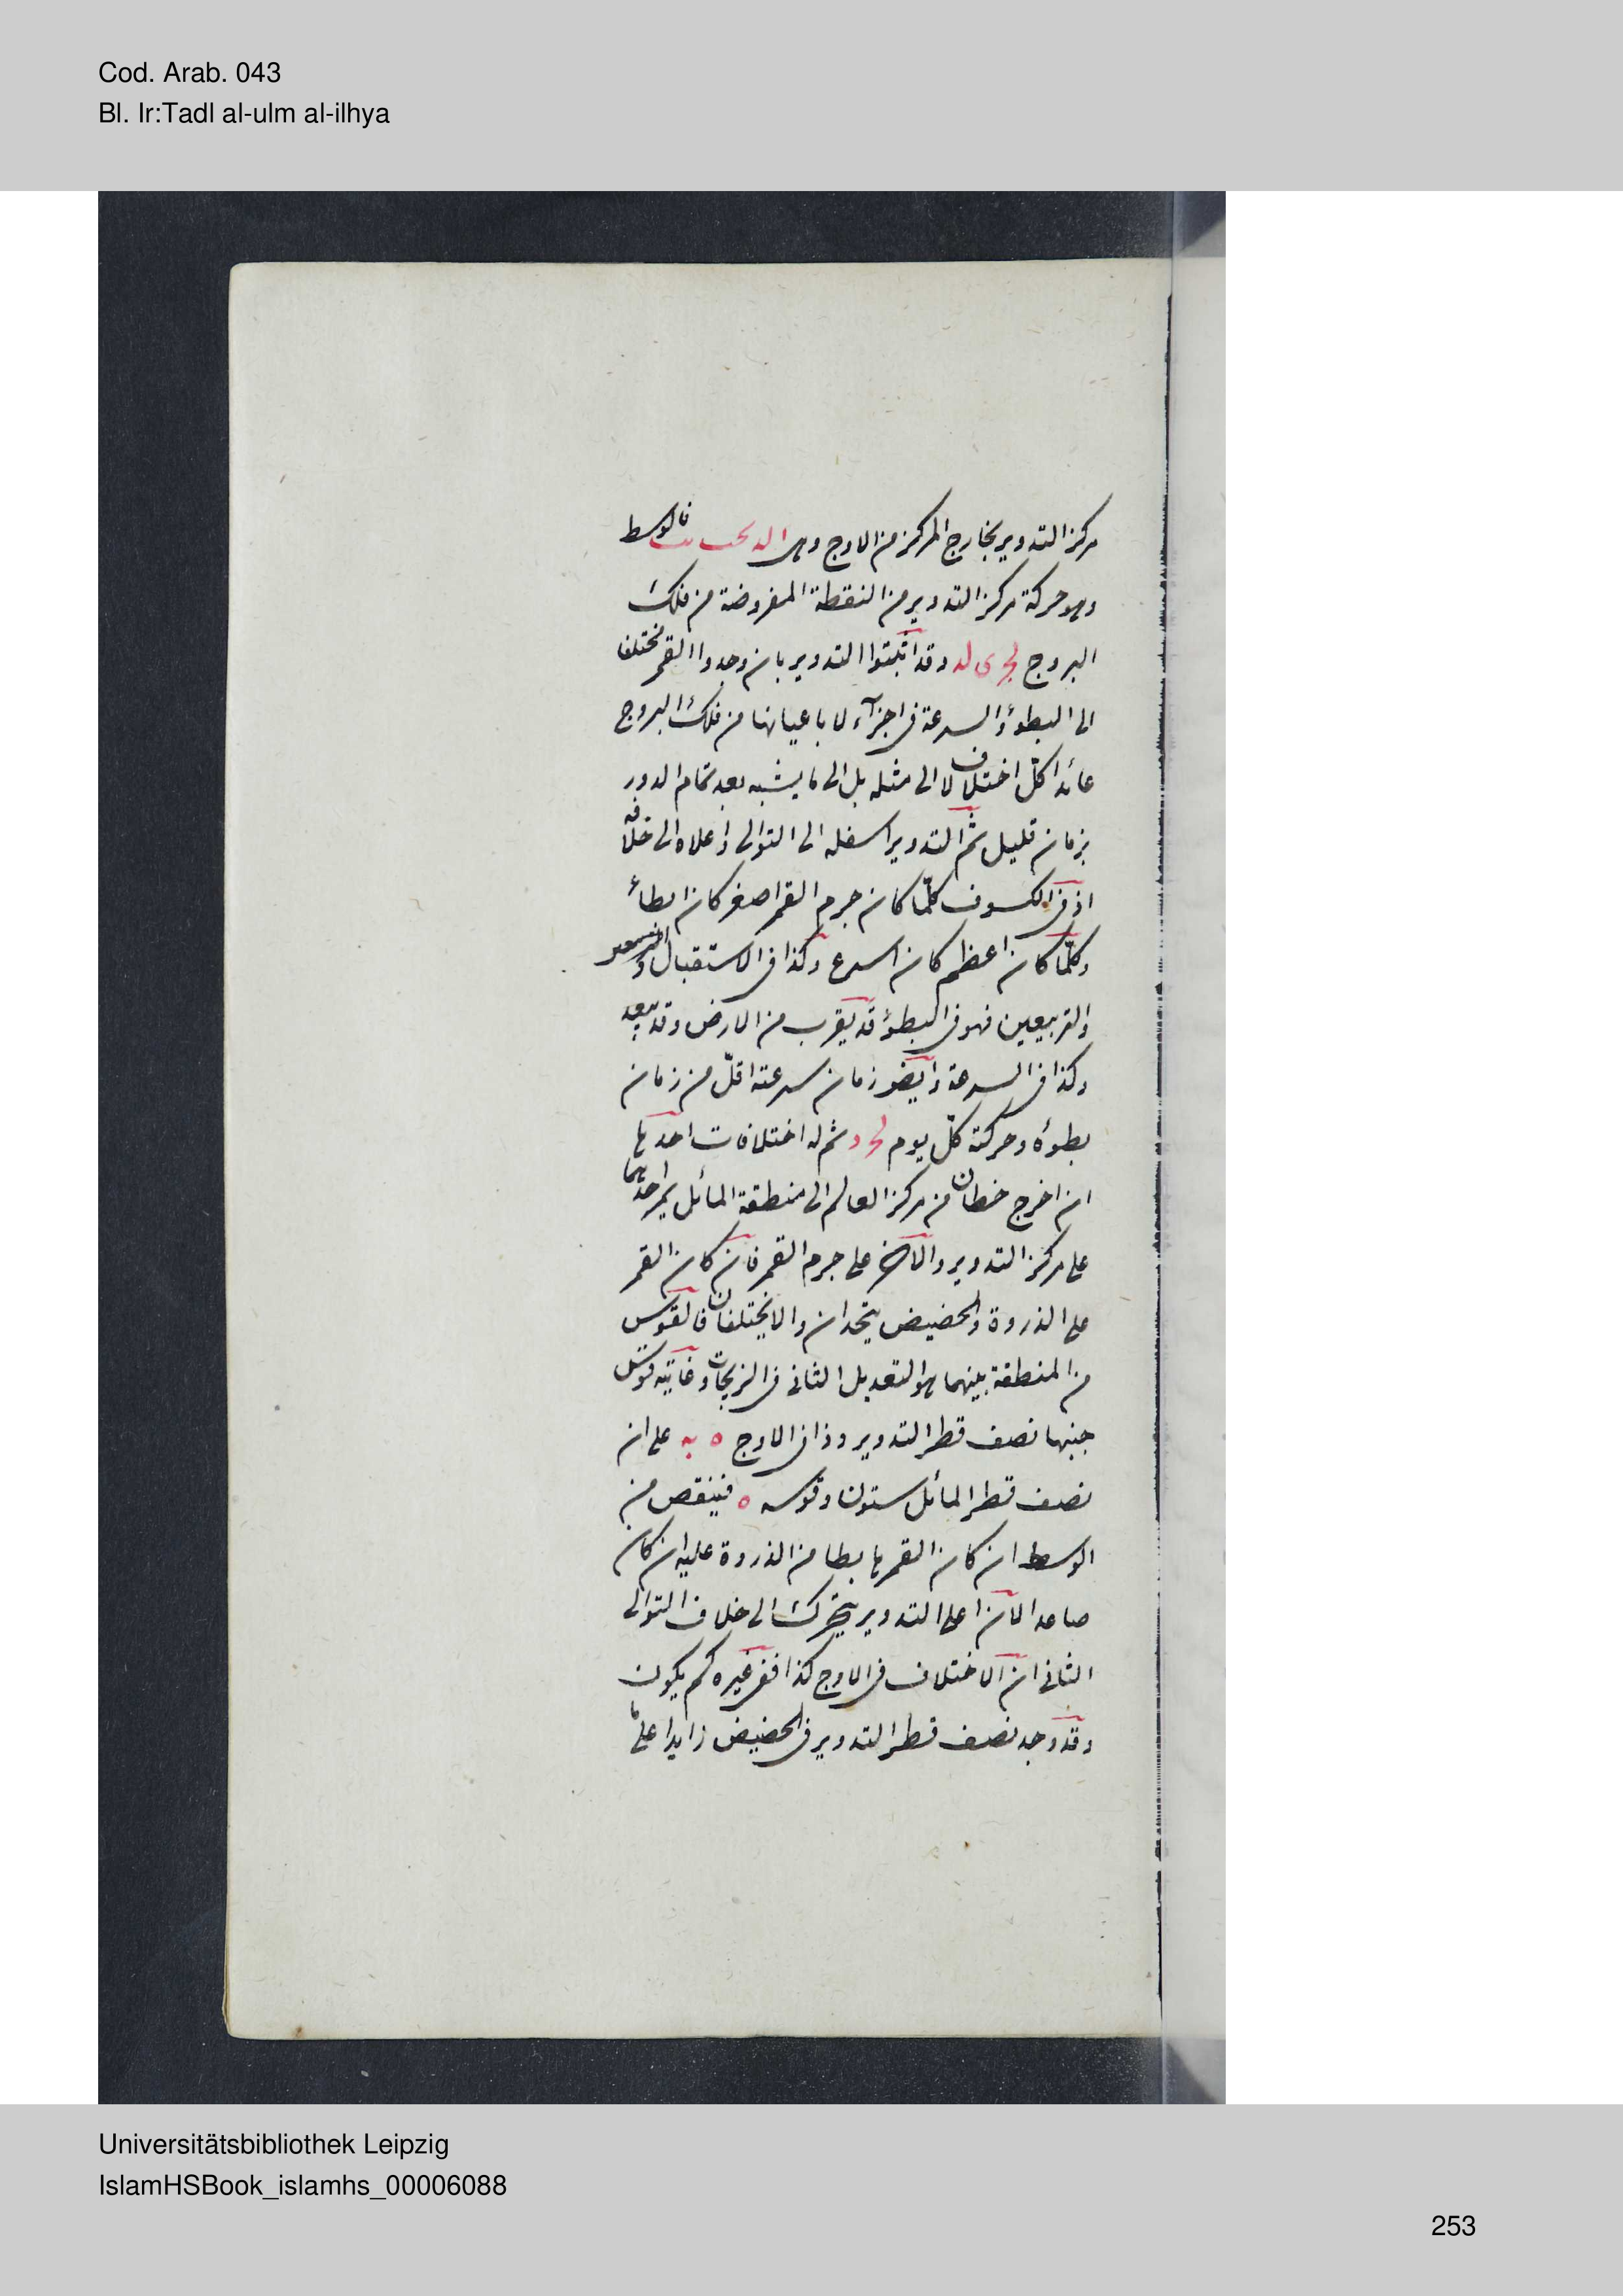 Cod. Arab. 043
Bl. Ir:Tadl al-ulm al-ilhya
مركز التدوير بخارج المركز من الاوج وهى فالوسط
وهو حركة مركز التدوير من النقطة المفروضة من فلك
البروج وقد اثبتوا التدوير بان وجدوا القمر مختلفا
الى البطوء والسرعة فى اجزآء لا باعيانها من فلك البروج
عائدا كلّ اختلاف لا الى مثله بل الى ما يشبه بعد تمام الدور
بزمان قليل ثم التدوير اسفله الى التوالى واعلاه الى خلافه
اذ فى الكسوف كلّما كان جرم القمر اصغر كان ابطأ
وكلّما كان اعظم كان اسرع وكذا فى الاستقبال
والتربيعين فهو فى البطوء قد يقرب من الارض وقد يبعد
وكذا فى السرعة وايضا زمان سرعته اقلّ من زمان
بطوءه وحركته كلّ يوم ثم له اختلافات احدها
ان اخرج خطان من مركز العالم الى منطقة المائل يمر احدهما
على مركز التدوير والآخر على جرم القمر فان كان القمر
على الذروة والحضيض يتحدان والا يختلفان فالقوس
من المنطقة بينهما هو التعديل الثانى فى الزيجات وغايته قوس
جيبها نصف قطر التدوير وذا فى الاوج ه يه على ان
نصف قطر المائل ستون وقوسه ه فينقص من
الوسط ان كان القمر هابطا من الذروة عليه ان كان
صاعدا لان اعلى التدوير يتحرك الى خلاف التوالى
الثانى ان الاختلاف فى الاوج كذا ففى غيره كم يكون
وقد وجد نصف قطر التدوير فى الحضيض زايدا على ما
Universitätsbibliothek Leipzig
IslamHSBook_islamhs_00006088
253